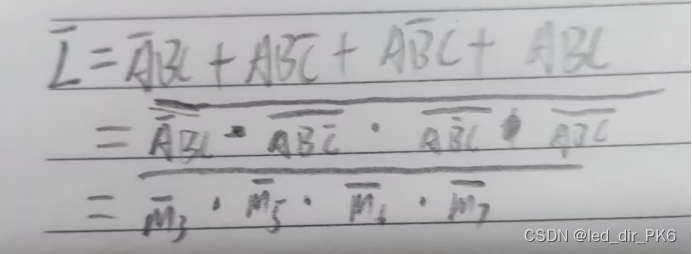 L̅ = A̅BC + ABC̅ + AB̅C + ABC
= \overline{\overline{A̅BC} · \overline{ABC̅} · \overline{AB̅C} · \overline{ABC}}
= \overline{m̅₃ · m̅₅ · m̅₆ · m̅₇}
CSDN @led_dir_PK6